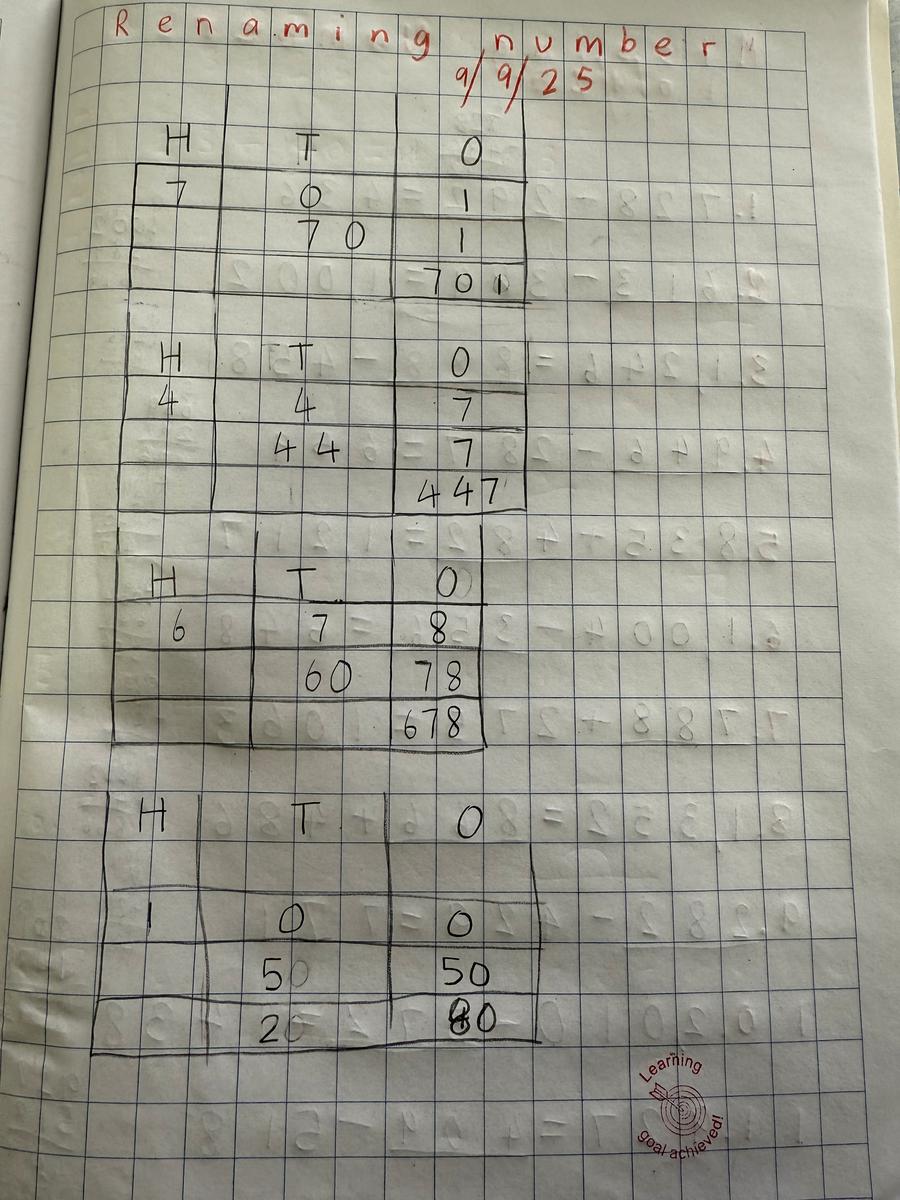 Renaming number
9/9/25
H T O
7 0 1
70 1
701
H T O
4 4 7
44 7
447
H T O
6 7 8
60 78
678
H T O
1 0 0
50 50
20 80
Learning
goal achieved!